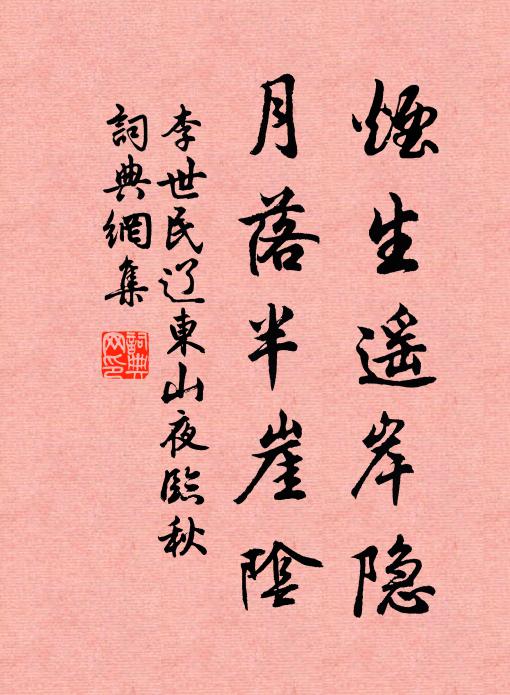 煙生遥岸隐
月落半崖陰
李世民辽東山夜臨秋
詞典網集
詞典网印